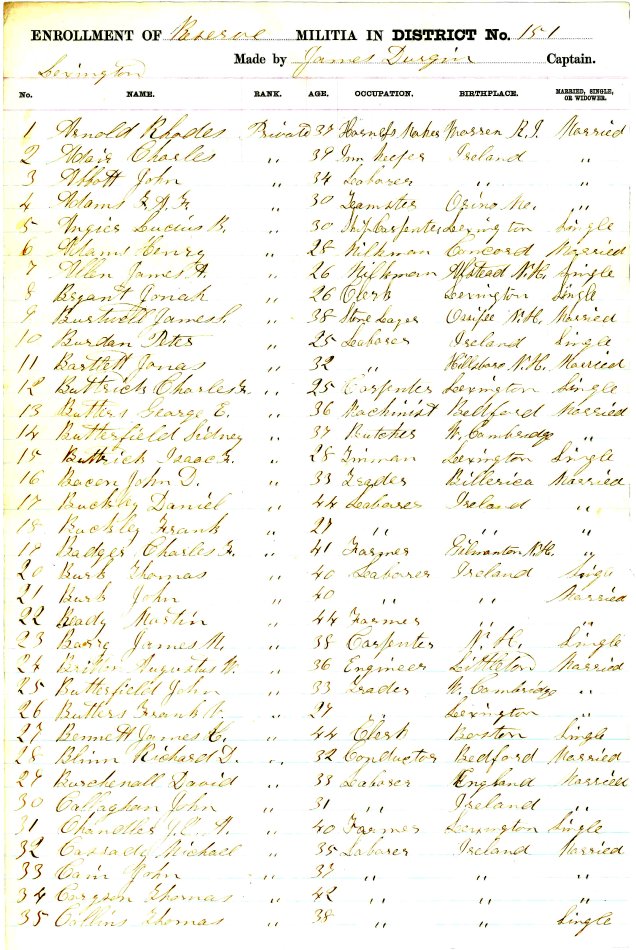 ENROLLMENT OF Reserve MILITIA IN DISTRICT No. 151
Lexington Made by James Durgin Captain.
No. NAME. RANK. AGE. OCCUPATION. BIRTHPLACE. MARRIED, SINGLE, OR WIDOWER.
1 Arnold Rhodes Private 37 Harness Maker Warren R.I. Married
2 Adair Charles " 39 Inn Keeper Ireland "
3 Abbott John " 34 Laborer " "
4 Adams " 30 Teamster Orino Me. "
5 Angier Lucius B. " 30 Ship Carpenter Lexington Single
6 Adams Henry " 28 Milkman Concord Married
7 Allen James A. " 26 Milkman Alstead N.H. Single
8 Bryant Jonah " 26 Clerk Lexington Single
9 James " 38 Stone Layer Ossipee N.H. Married
10 Burdan Peter " 25 Laborer Ireland Single
11 Bartlett Jonas " 32 " Hillsboro N.H. Married
12 Buttrick Charles F. " 25 Carpenter Lexington Single
13 Butters George E. " 36 Machinist Bedford Married
14 Butterfield Sidney " 37 Butcher W. Cambridge "
15 Buttrick Isaac F. " 28 Tinman Lexington Single
16 Bacon John D. " 33 Trader Billerica Married
17 Buckley Daniel " 44 Laborer Ireland "
18 Buckley Frank " 27 " " "
19 Badger Charles F. " 41 Farmer Gilmanton N.H. "
20 Burk Thomas " 40 Laborer Ireland Single
21 Burk John " 40 " " Married
22 Martin " 44 Farmer " "
23 James M. " 35 Carpenter N. H. Single
24 Augustus W. " 36 Engineer Littleton Married
25 Butterfield John " 33 Trader W. Cambridge "
26 Butters Frank V. " 27 " Lexington "
27 Bennett James C. " 44 Clerk Boston Single
28 Blinn Richard D. " 32 Conductor Bedford Married
29 Burchenall David " 33 Laborer England Married
30 Callaghan John " 31 " Ireland "
31 Chandler " 40 Farmer Lexington Single
32 Cassady Michael " 35 Laborer Ireland Married
33 Cain John " 37 " " "
34 Thomas " 42 " " "
35 Collins Thomas " 38 " " Single